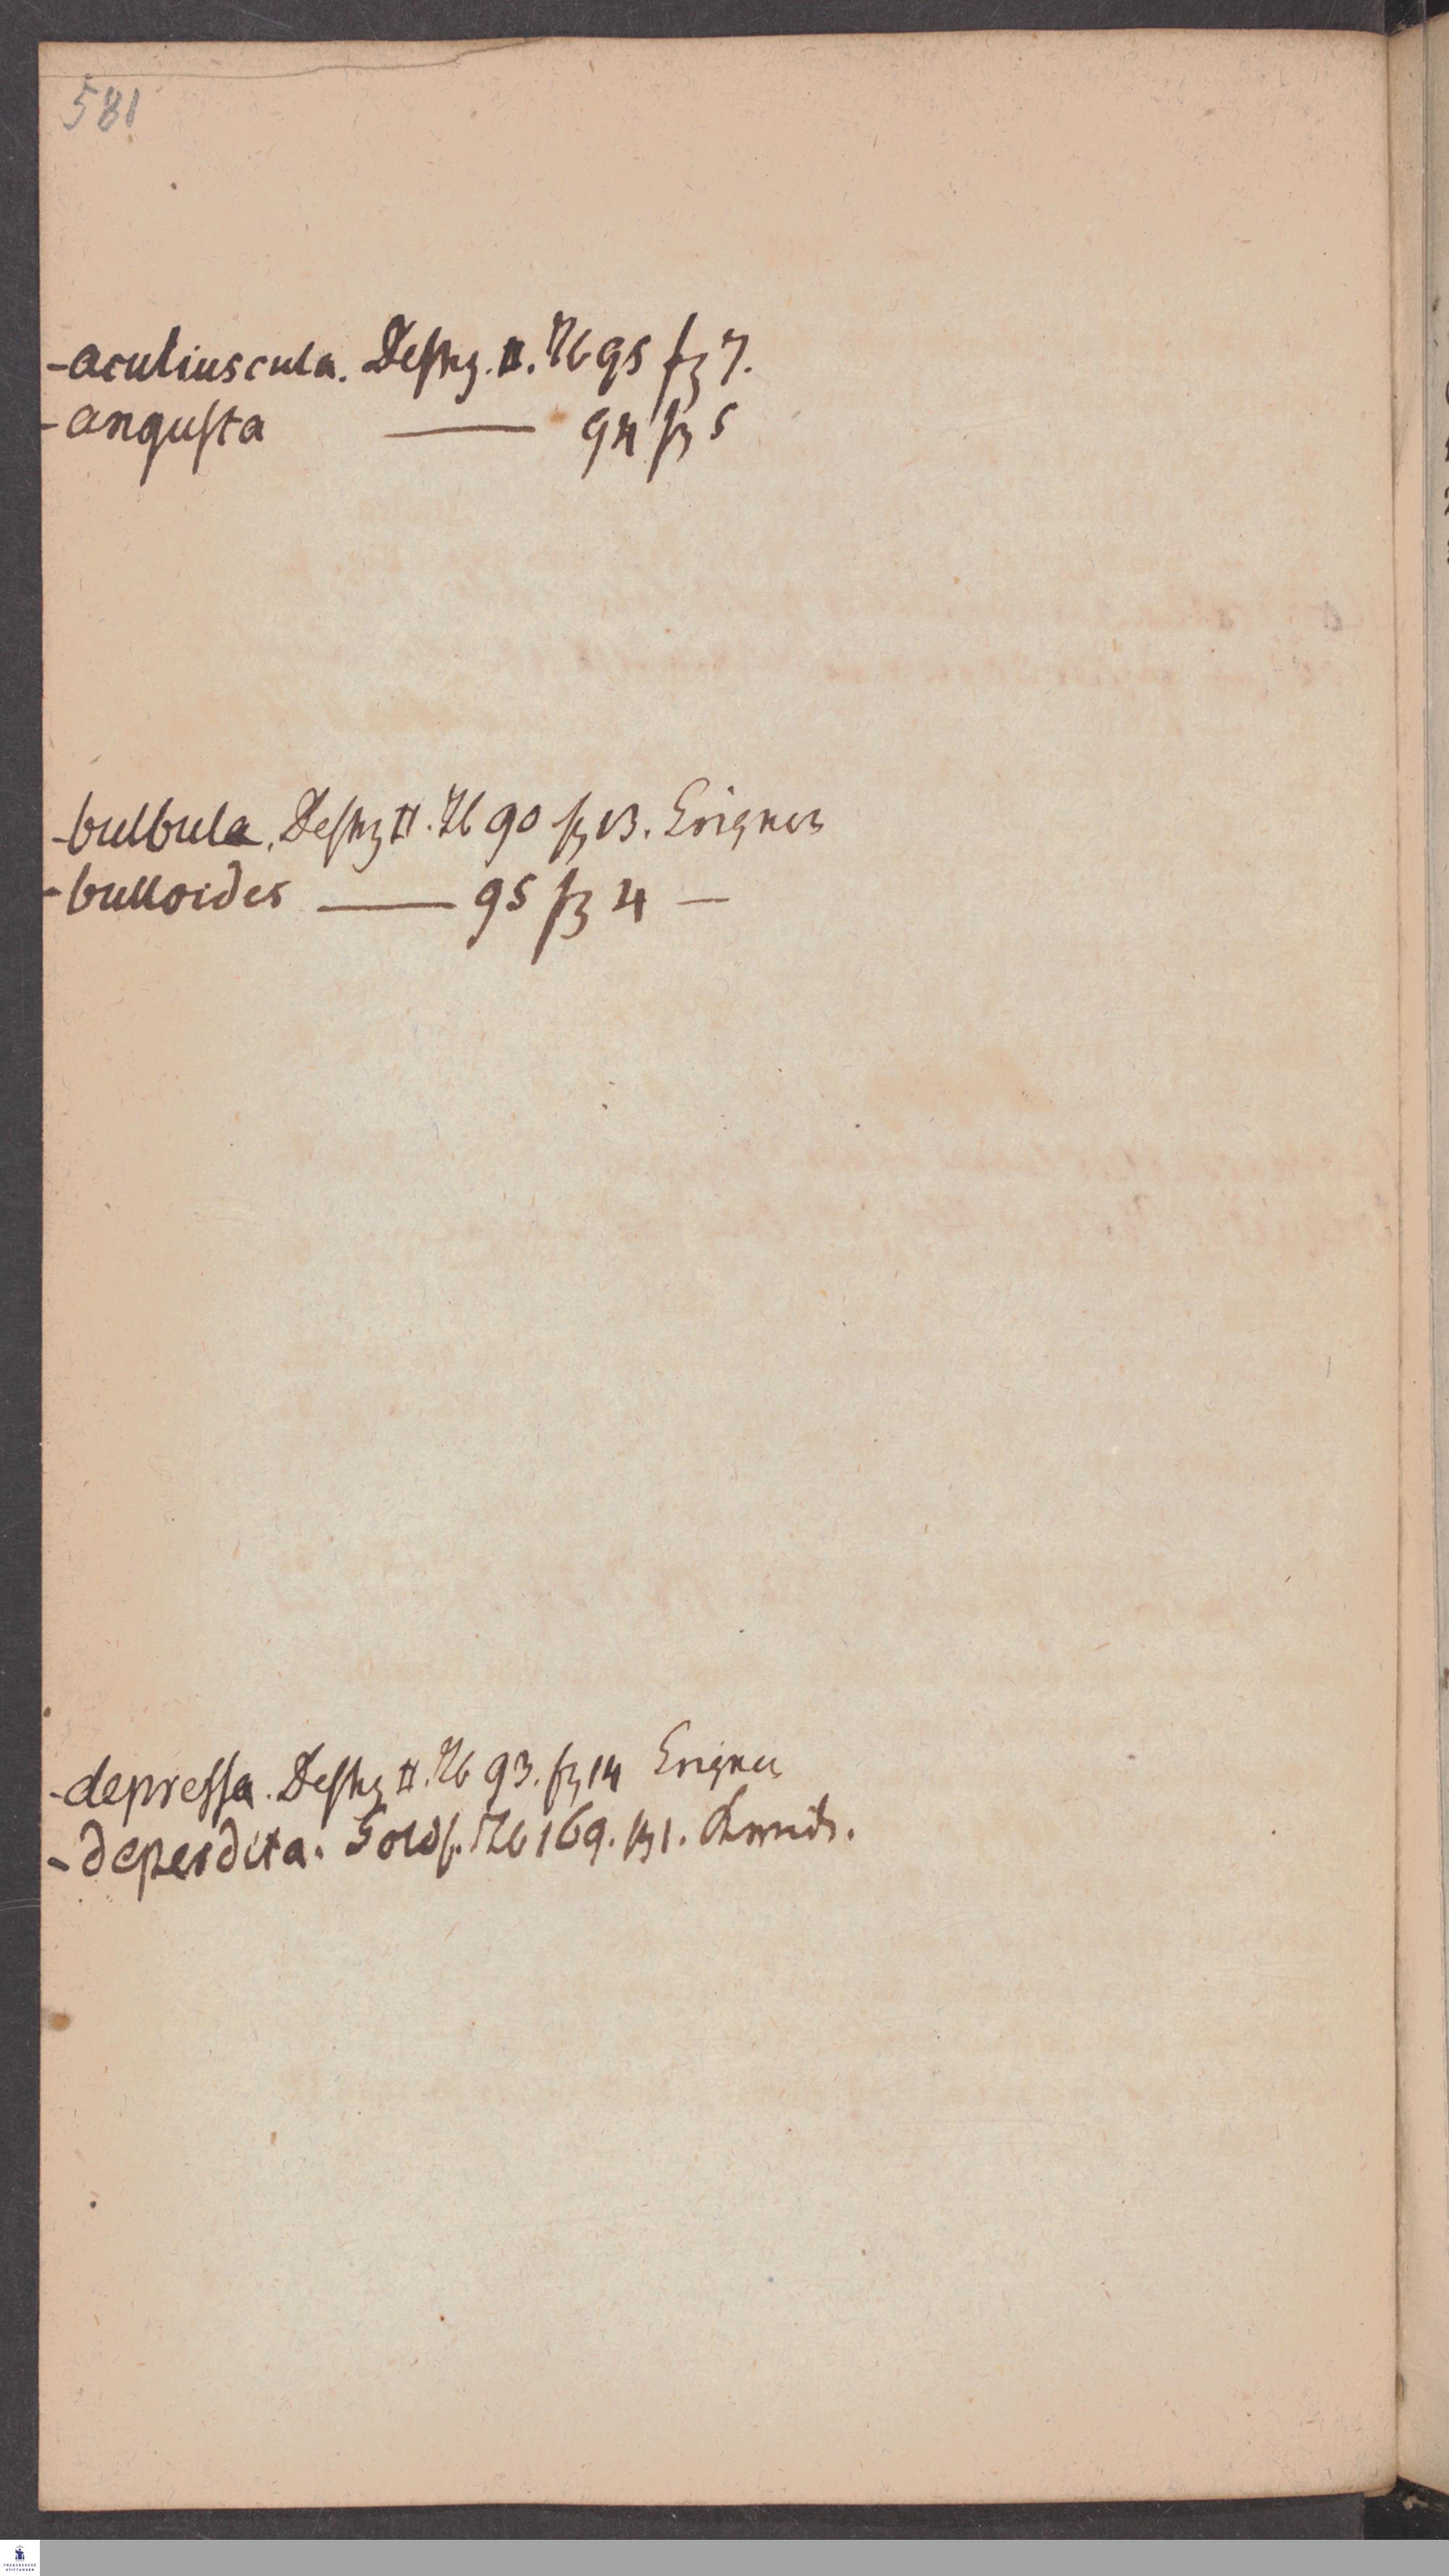 581
-acutiuscula. Deshz. II. Tb 95 fg 7.
-angusta — 94 fg 5
-bulbula. Deshz II. Tb 90 fg 13. Grignon
-bulloides — 95 fg 4 —
-depressa. Deshz II. Tb 93. fg 14 Grignon
-deperdita. Goldf. Tb 169. fg 1.
FRANCKESCHE
STIFTUNGEN